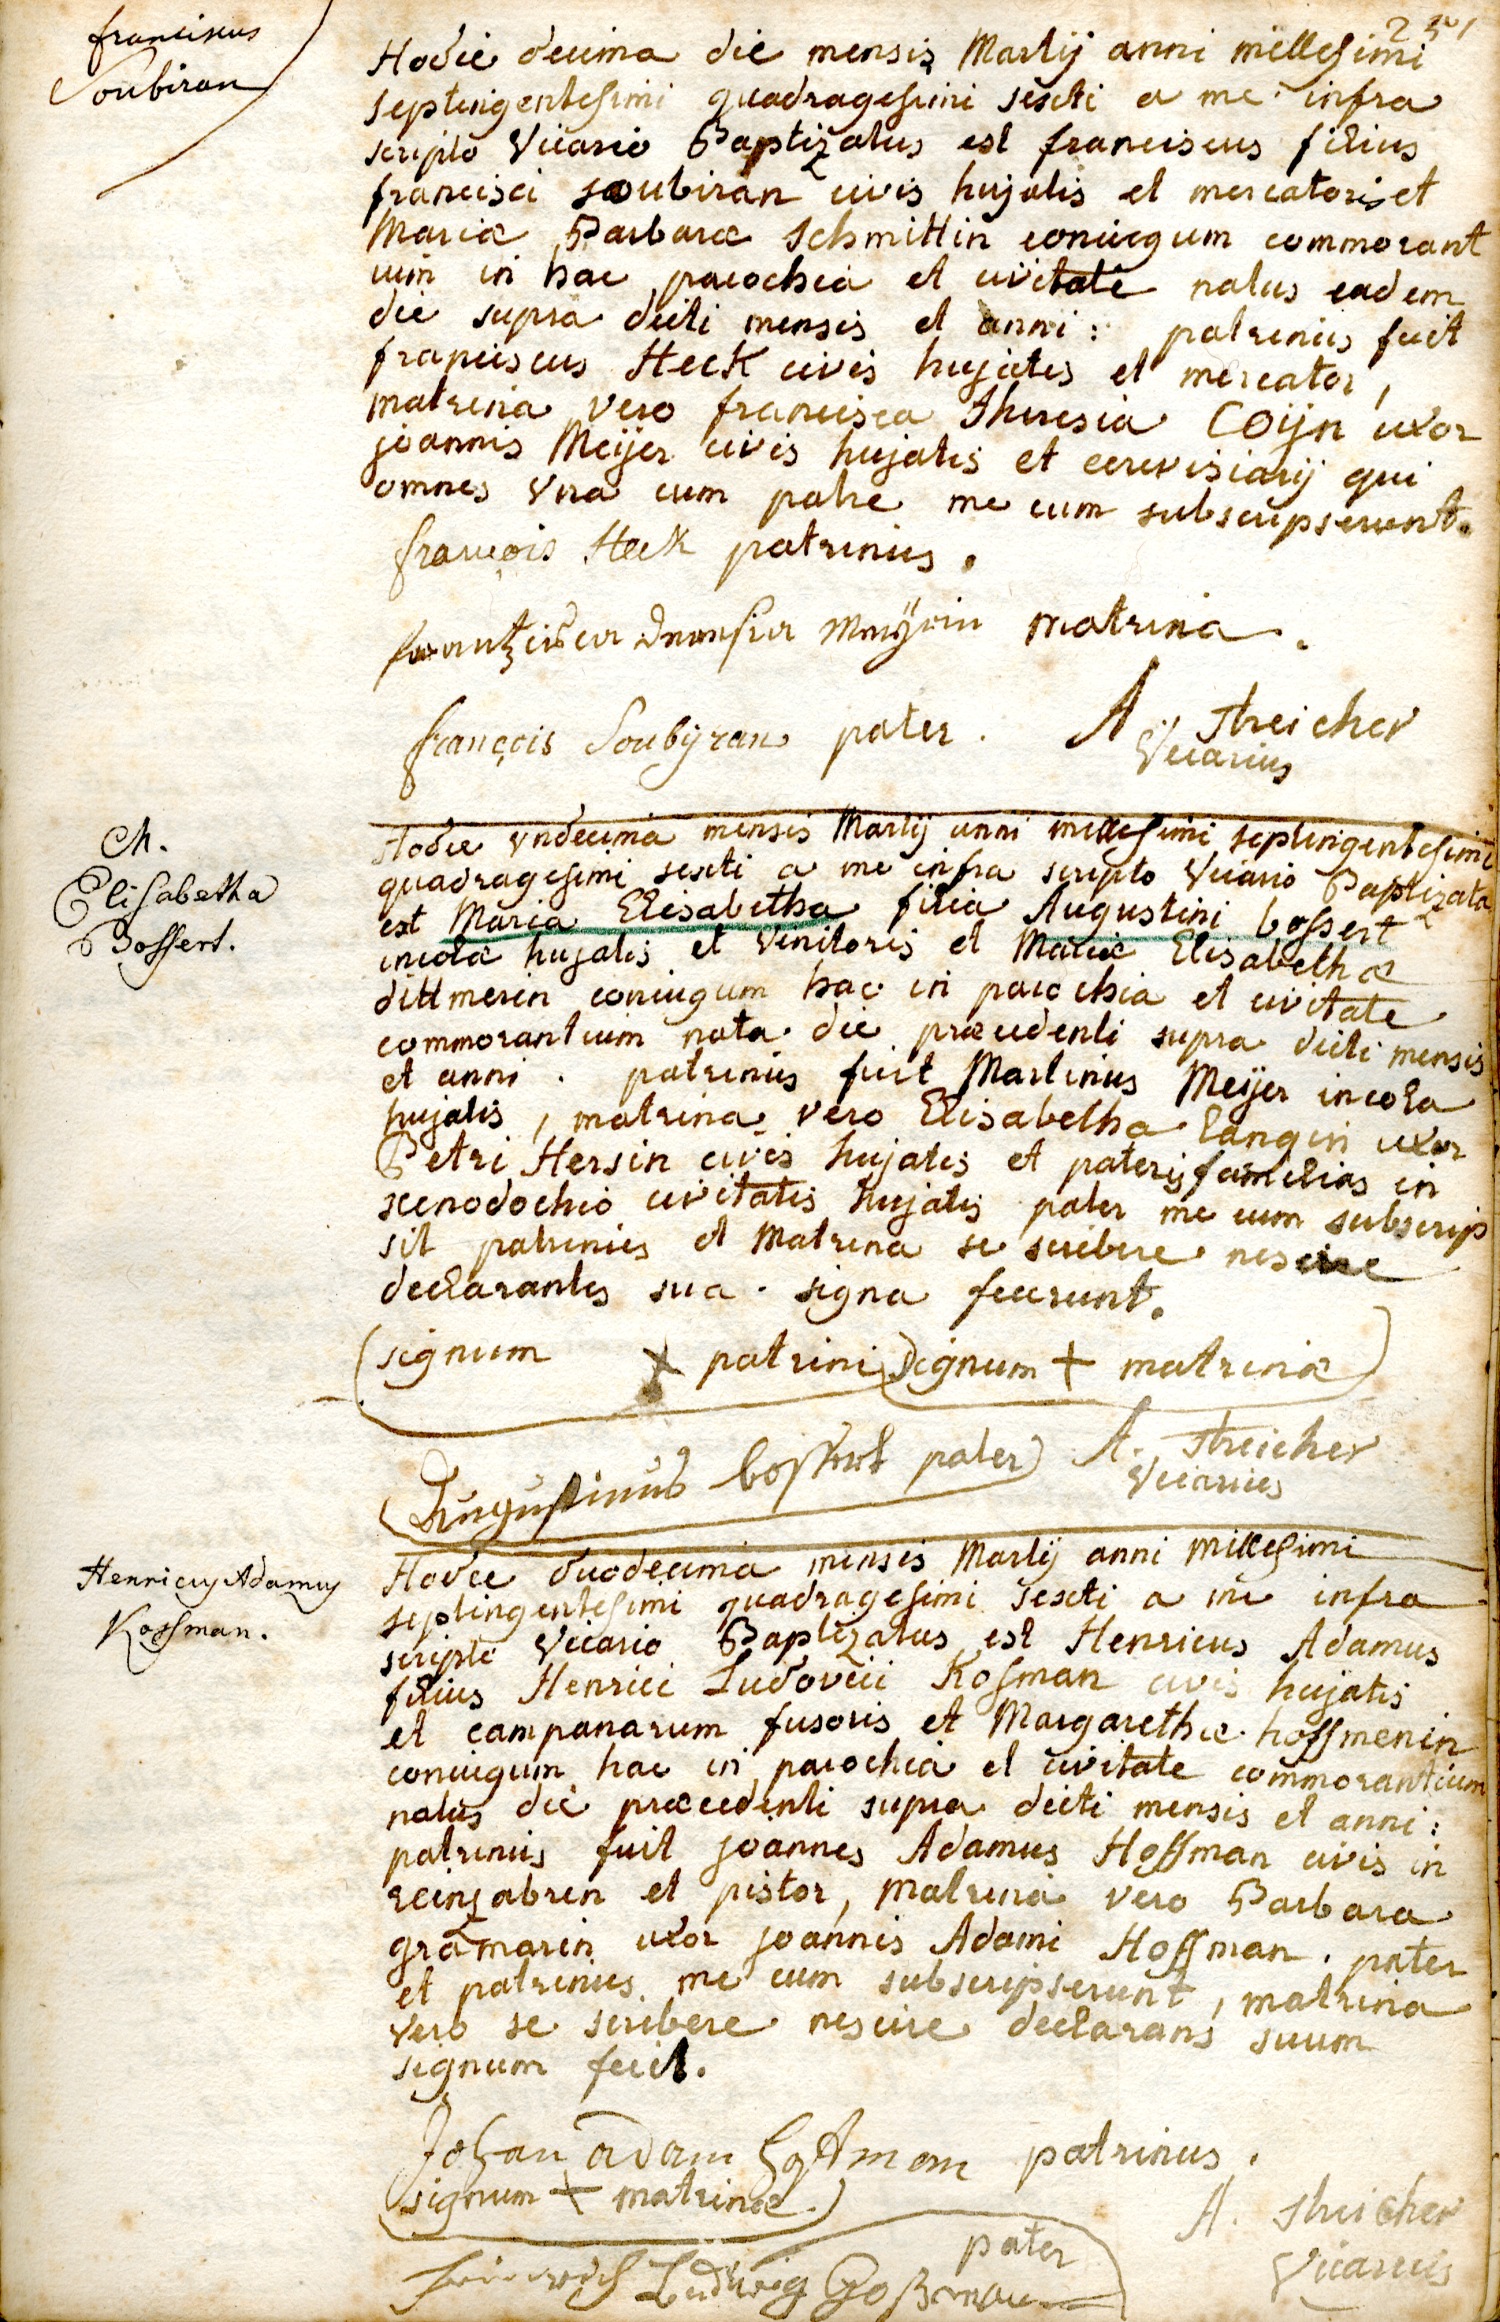 251
franciscus
Soubiran
Hodie decima die mensis Martij anni millesimi
septingentesimi quadragesimi sexti a me infra
scripto Vicario Baptizatus est franciscus filius
francisci soubiran civis hujatis et mercatoris et
Mariæ Barbaræ Schmittin coniugum commorant
ium in hac parochia et civitate natus eadem
die supra dicti mensis et anni: patrinus fuit
franciscus Heck civis hujatis et mercator,
matrina vero francisca Theresia Coijn uxor
joannis Meijer civis hujatis et cerevisiarij qui
omnes Vna cum patre me cum subscripserunt.
françois Heck patrinus.
Meÿrin matrina.
françois Soubÿran pater. A. Streicher
Vicarius
M.
Elisabetha
Bossert.
Hodie Vndecima mensis Martij anni millesimi septingentesimi
quadragesimi sexti a me infra scripto Vicario Baptizata
est Maria Elisabetha filia Augustini bossert
incolæ hujatis et Vinitoris et Mariæ Elisabethæ
dittmerin coniugum hac in parochia et civitate
commorantium nata die præcedenti supra dicti mensis
et anni. patrinus fuit Martinus Meijer incola
hujatis, matrina vero Elisabetha langin uxor
Petri Hersin civis hujatis et patris familias in
xenodochio civitatis hujatis pater me cum subscrip
sit patrinus et Matrina se scribere nescire
declarantes sua signa fecerunt.
signum + patrini signum + matrinæ
Augustinus bossert pater A. Streicher
Vicarius
Henricus Adamus
Kossman.
Hodie duodecima mensis Martij anni millesimi
septingentesimi quadragesimi sexti a me infra
scripto Vicario Baptizatus est Henricus Adamus
filius Henrici Ludovici Kosman civis hujatis
et campanarum fusoris et Margarethæ hoffmenin
coniugum hac in parochia et civitate commorantium
natus die præcedenti supra dicti mensis et anni:
patrinus fuit joannes Adamus Hoffman civis in
reinzabren et pistor, matrina vero Barbara
gramarin uxor joannis Adami Hoffman. pater
et patrinus me cum subscripserunt, matrina
vero se scribere nescire declarans suum
signum fecit.
Johan adam Hoffman patrinus.
signum + matrinæ. A. Streicher
pater Vicarius
Heinrich Ludwig Goßman